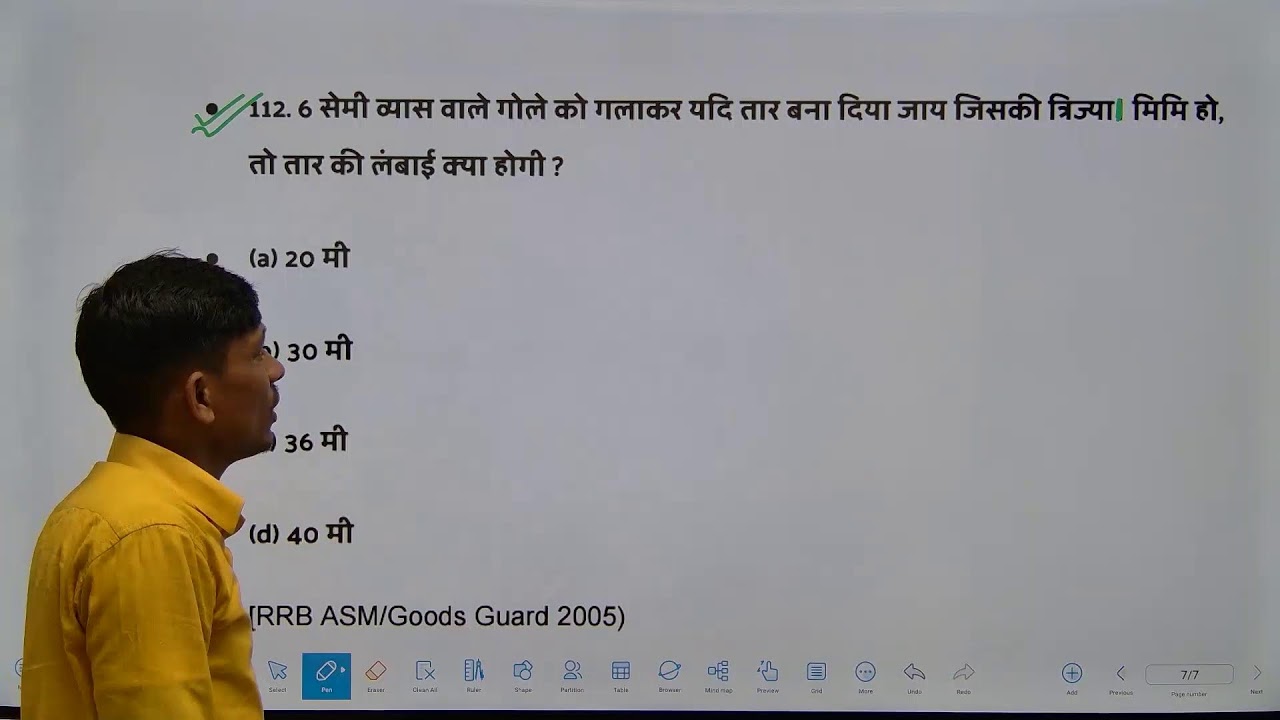 112. 6 सेमी व्यास वाले गोले को गलाकर यदि तार बना दिया जाय जिसकी त्रिज्या1 मिमि हो,
तो तार की लंबाई क्या होगी ?
(a) 20 मी
) 30 मी
) 36 मी
(d) 40 मी
[RRB ASM/Goods Guard 2005)
Select Pen Eraser Clean All Ruler Shape Partition Table Browser Mind map Preview Grid More Undo Redo Add Previous 7/7 Page number Next